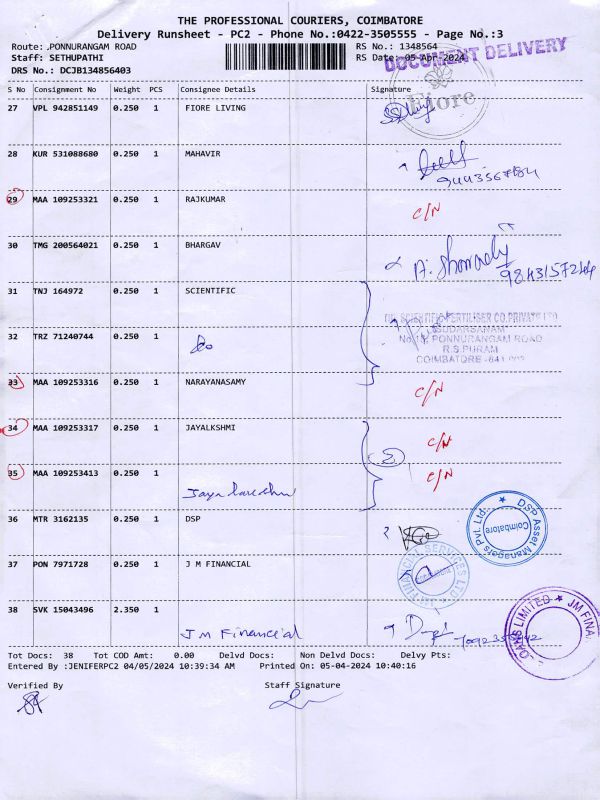 THE PROFESSIONAL COURIERS, COIMBATORE
Delivery Runsheet - PC2 - Phone No.:0422-3505555 - Page No.:3
Route: .PONNURANGAM ROAD RS No.: 1348564
Staff: SETHUPATHI RS Date: 05-Apr-2024
DOCUMENT DELIVERY
DRS No.: DCJB134856403
S No Consignment No Weight PCS Consignee Details Signature
Fiore
27 VPL 942851149 0.250 1 FIORE LIVING
28 KUR 531088680 0.250 1 MAHAVIR
29 MAA 109253321 0.250 1 RAJKUMAR C/N
30 TMG 200564021 0.250 1 BHARGAV
31 TNJ 164972 0.250 1 SCIENTIFIC
SCIENTIFIC FERTILISER CO.PRIVATE LTD
"SUDARSANAM"
32 TRZ 71240744 0.250 1 PONNURANGAM ROAD
R.S PURAM
COIMBATORE
33 MAA 109253316 0.250 1 NARAYANASAMY C/N
34 MAA 109253317 0.250 1 JAYALKSHMI C/N
35 MAA 109253413 0.250 1 C/N
36 MTR 3162135 0.250 1 DSP
DSP Asset Managers Pvt. Ltd. Coimbatore
37 PON 7971728 0.250 1 J M FINANCIAL
JM FINANCIAL SERVICES LTD
38 SVK 15043496 2.350 1
JM Financial
LIMITED ★ JM FINA
Tot Docs: 38 Tot COD Amt: 0.00 Delvd Docs: Non Delvd Docs: Delvy Pts:
Entered By :JENIFERPC2 04/05/2024 10:39:34 AM Printed On: 05-04-2024 10:40:16
Verified By Staff Signature